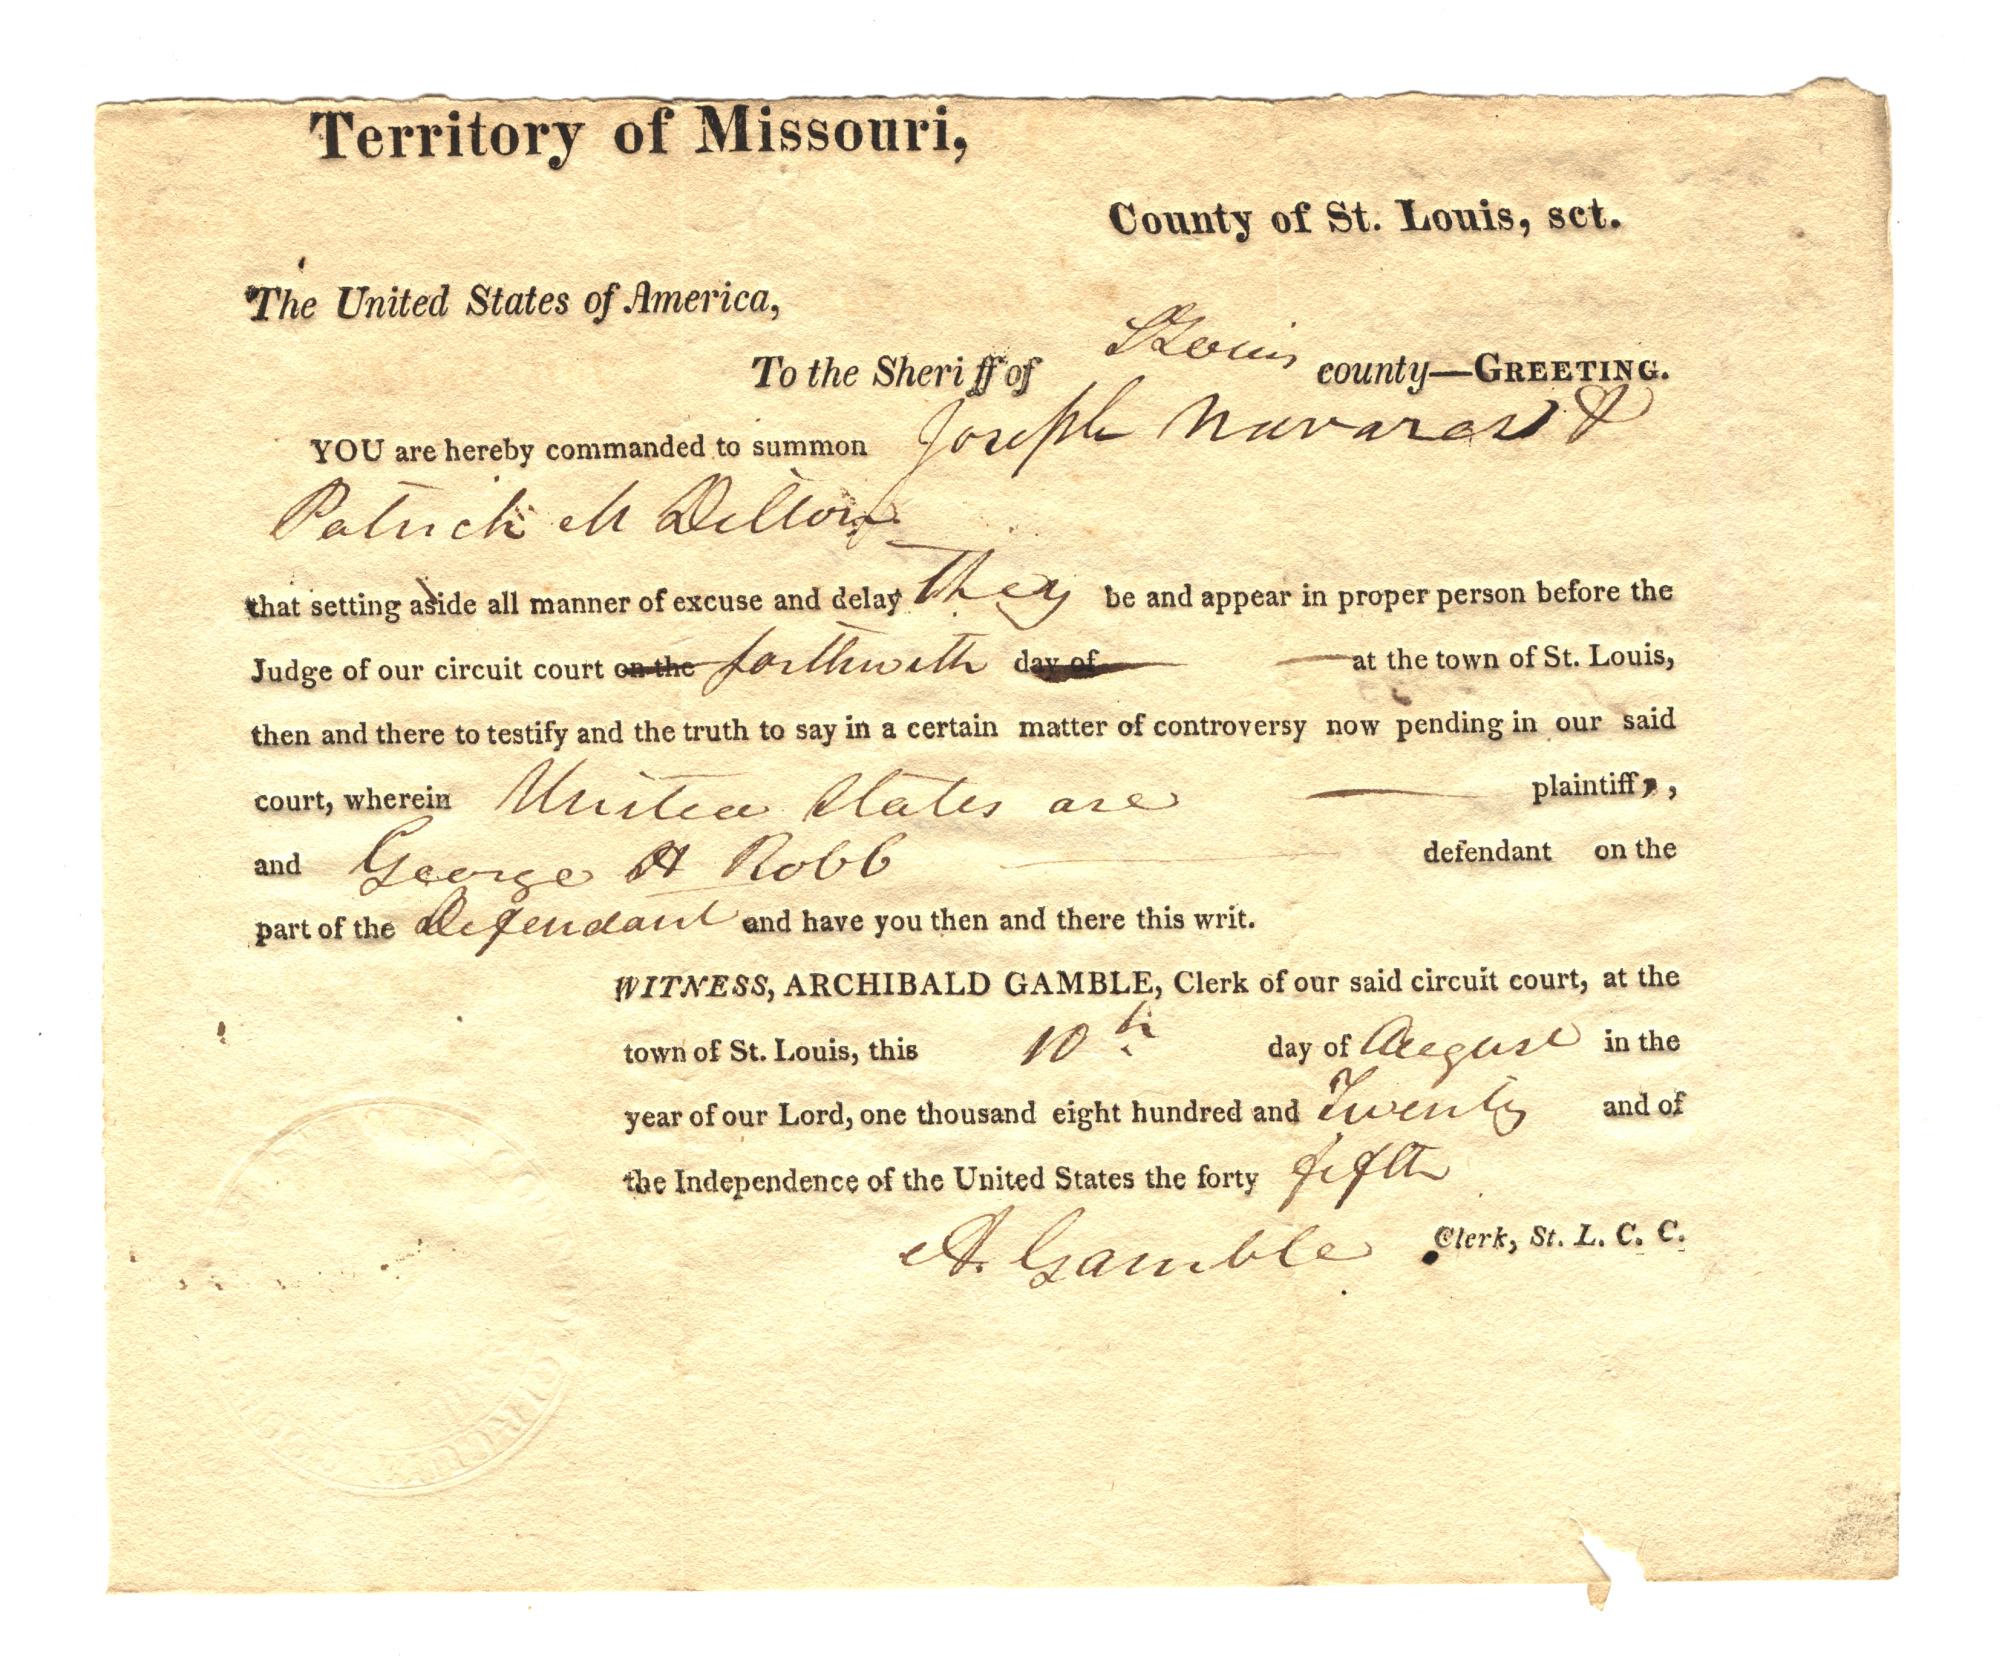 Territory of Missouri,
County of St. Louis, sct.
The United States of America,
To the Sheriff of St Louis county—GREETING.
YOU are hereby commanded to summon Joseph Navarro &
Patrick M Dillon
that setting aside all manner of excuse and delay they be and appear in proper person before the
Judge of our circuit court on the forthwith day of at the town of St. Louis,
then and there to testify and the truth to say in a certain matter of controversy now pending in our said
court, wherein United States are plaintiff,
and George H Robb defendant on the
part of the Defendant and have you then and there this writ.
WITNESS, ARCHIBALD GAMBLE, Clerk of our said circuit court, at the
town of St. Louis, this 10th day of August in the
year of our Lord, one thousand eight hundred and Twenty and of
the Independence of the United States the forty fifth
A. Gamble Clerk, St. L. C. C.